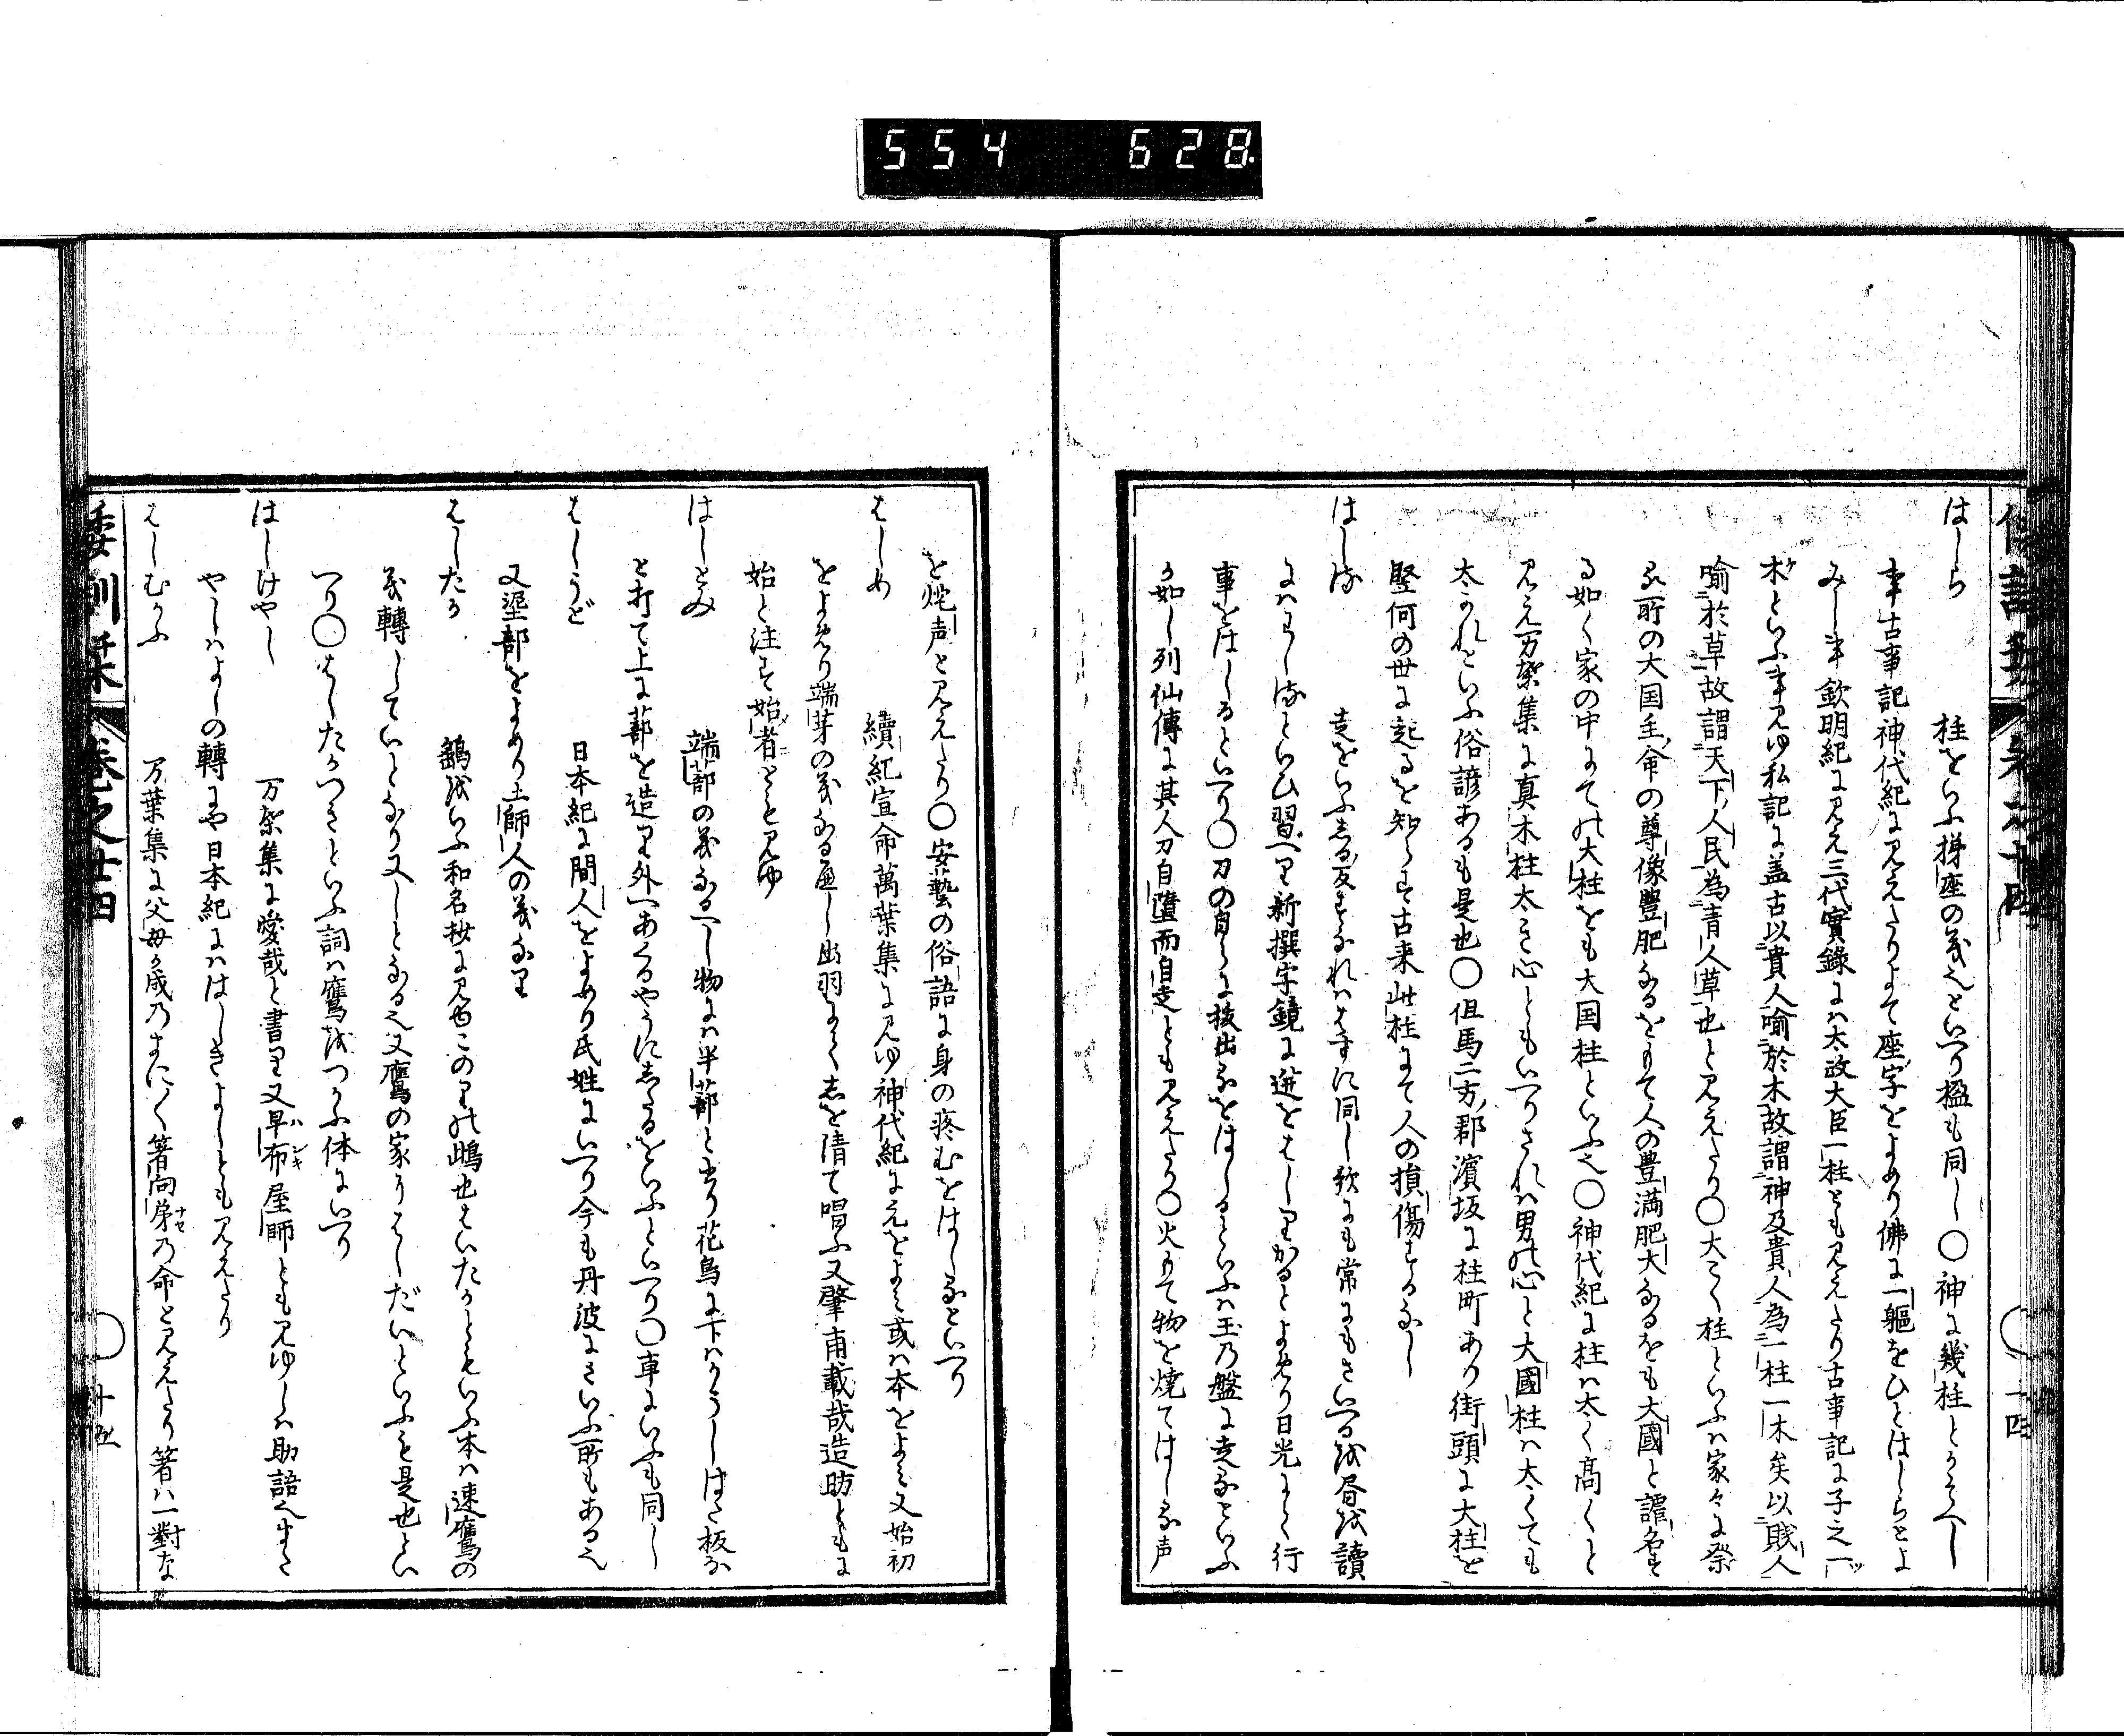 554 628
はしら　柱をいふ揷座の義也といへり楹も同し○神に幾柱とかそへし
事古事記神代紀に見えたりよて座字をよめり佛に一軀をひとはしらとよ
みし事欽明紀に見え三代實錄には太政大臣一柱とも見えたり古事記に子之一ツ
木といふ事見ゆ私記に蓋古以貴人喻於木故謂神及貴人為一柱一木矣以賎人
喻於草故謂天下人民為青人草也と見えたり○大こく柱といふは家々に祭
る所の大国主命の尊像豊肥なるをもて人の豊満肥大なるをも大國と謔名す
る如く家の中にての大柱をも大国柱といふ也○神代紀に柱は太く高くと
見え万葉集に真木柱太き心ともいへりされは男の心と大國柱は太くても
太かれといふ俗諺あるも是也○但馬二方郡濱坂に柱町あり街頭に大柱を
竪何の世に起るを知らす古来此柱にて人の損傷するなし
はしる　走をいふしる反すなれははすに同し歌にも常にもさいへる越昏越讀
にはわしるといひ習へり新撰字鏡に迸をはしりかるとよめり日光にて行
事をはしるといへり○刀の自らに拔出るをはしるといふは玉乃盤に走るといふ
か如し列仙傳に其人刀自墮而自走とも見えたり○火もて物を燒てはしる声
を㶡声と見えたり○安藝の俗語に身の疼むをはしるといへり
はしめ　續紀宣命萬葉集に見ゆ神代紀に元をよみ或は本をよみ又始初
をよめり端芽の義なる歟し出羽にてしを清て唱ふ又肇甫載哉造昉ともに
始と注す始者ともみゆ
はしとみ　端蔀の義なるへし物には半蔀と書り花鳥に下はかうしはた板な
と打て上に蔀を造り外へあくるやうにしたるをいふといへり○車にいふも同し
はしうど　日本紀に間人をよめり氏姓にいへり今も丹波にさいふ所もある也
又埿部をよめり土師人の義なり
はしたか　鷂越いふ和名抄に見ゆこのりの雌也はいたかともいふ本は速鷹の
義轉してはいとなり又しとなる也又鷹の家にはしだいといふも是也とい
へり○はしたかへさといふ詞は鷹越つかふ体にいへり
はしけやし　万葉集に愛哉と書り又早布屋師とも見ゆしは助語也また
やしはよしの轉にや日本紀にははしきよしとも見えたり
はしむかふ　万葉集に父母か成乃まに〱箸向弟乃命と見えたり箸は一對な
委訓栞　卷之廿四　○　十五